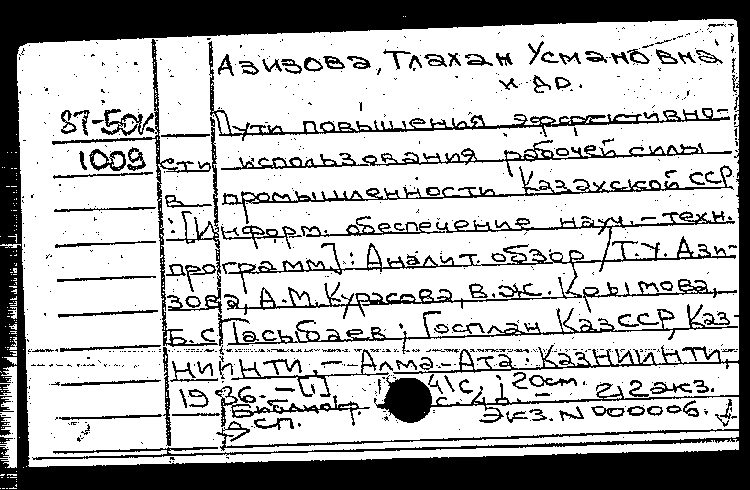 Азизова, Тлахан Усмановна
и др.
87-50к Пути повышения эффективно-
1009 сти использования рабочей силы
в промышленности Казахской ССР
: [Информ. обеспечение науч.-техн.
программ] : Аналит. обзор / Т. У. Ази-
зова, А. М. Курасова, В. Ж. Крымова,
Б. С. Тасыбаев ; Госплан КазССР, Каз-
НИИНТИ. - Алма-Ата : КазНИИНТИ,
1986. - [1], 41 с. ; 20 см.
Библиогр. с. - 212 экз.
ДСП. Экз. N 000006.